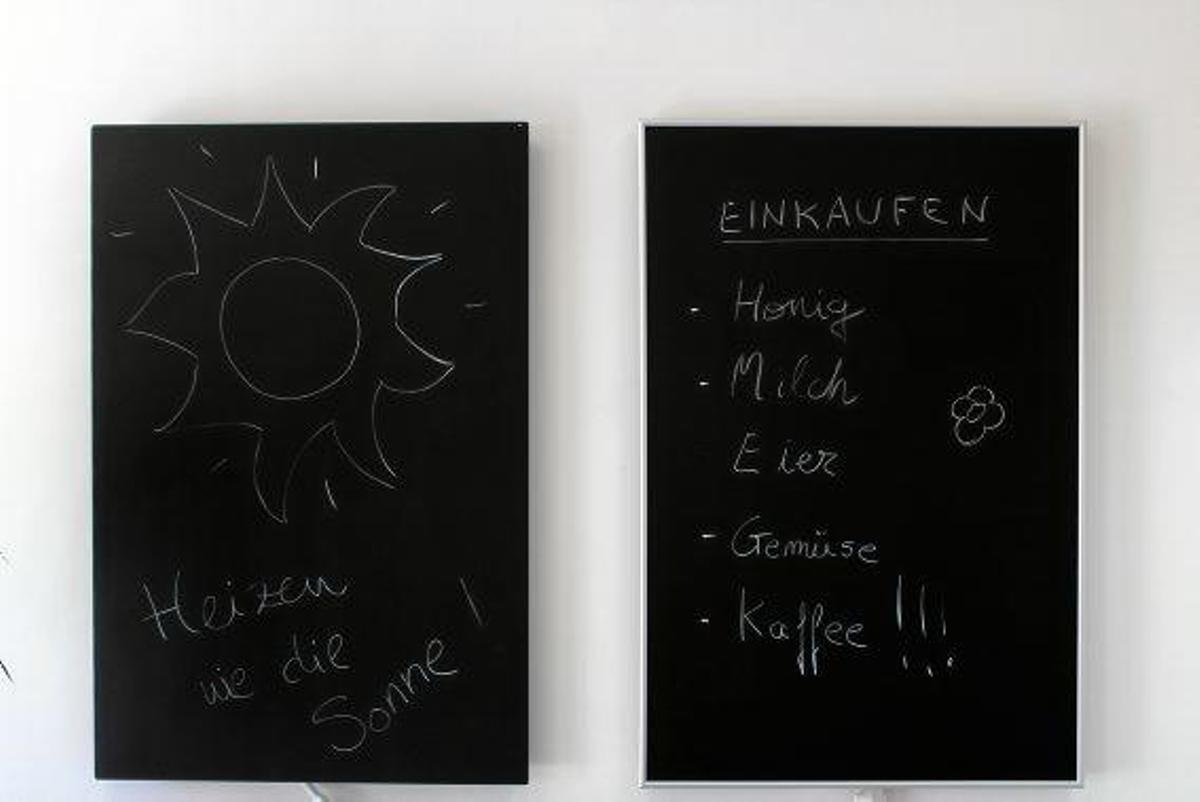 Heizen
wie die
Sonne !
EINKAUFEN
- Honig
- Milch
Eier
- Gemüse
- Kaffee !!!